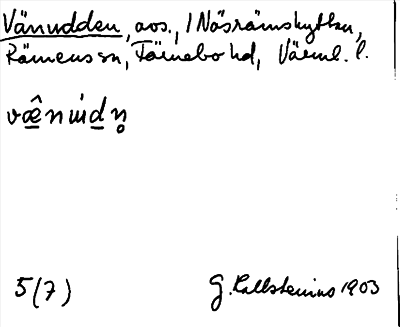 Vänudden, aos., / Näsrämshyttan,
Rämens sn, Färnebo hd, Värml. l.
væ̂nu̇dn̥
5(7) G. Kallstenius 1903